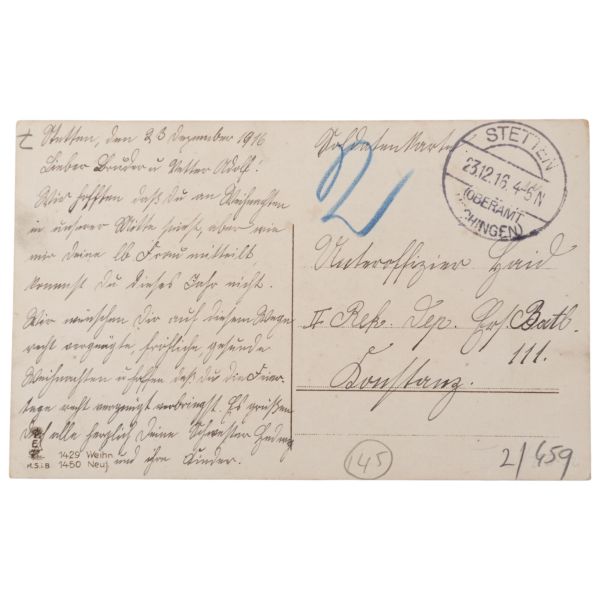 Stetten, den 23 Dezember 1916
Lieber Bruder u Vetter Adolf!
Wir hofften daß du an Weihnachten
in unserer Mitte seiest, aber wie
mir deine lb Frau mitteilt,
kommst du dieses Jahr nicht.
Wir wünschen Dir auf diesem Wege
recht vergnügte, fröhliche gesunde
Weihnachten u hoffen daß du die Feier-
tage recht vergnügt verbringst. Es grüßen
Dich alle herzlich deine Schwester Hedwig
und ihre Kinder.
1429 Weihn
1450 Neuj.
M.S.i.B
Soldatenkarte
2
STETTEN
23.12.16. 4-5 N
(OBERAMT
HINGEN)
Unteroffizier Haid
II Rek. Dep. Ers Batl.
111.
Konstanz.
145
2/659